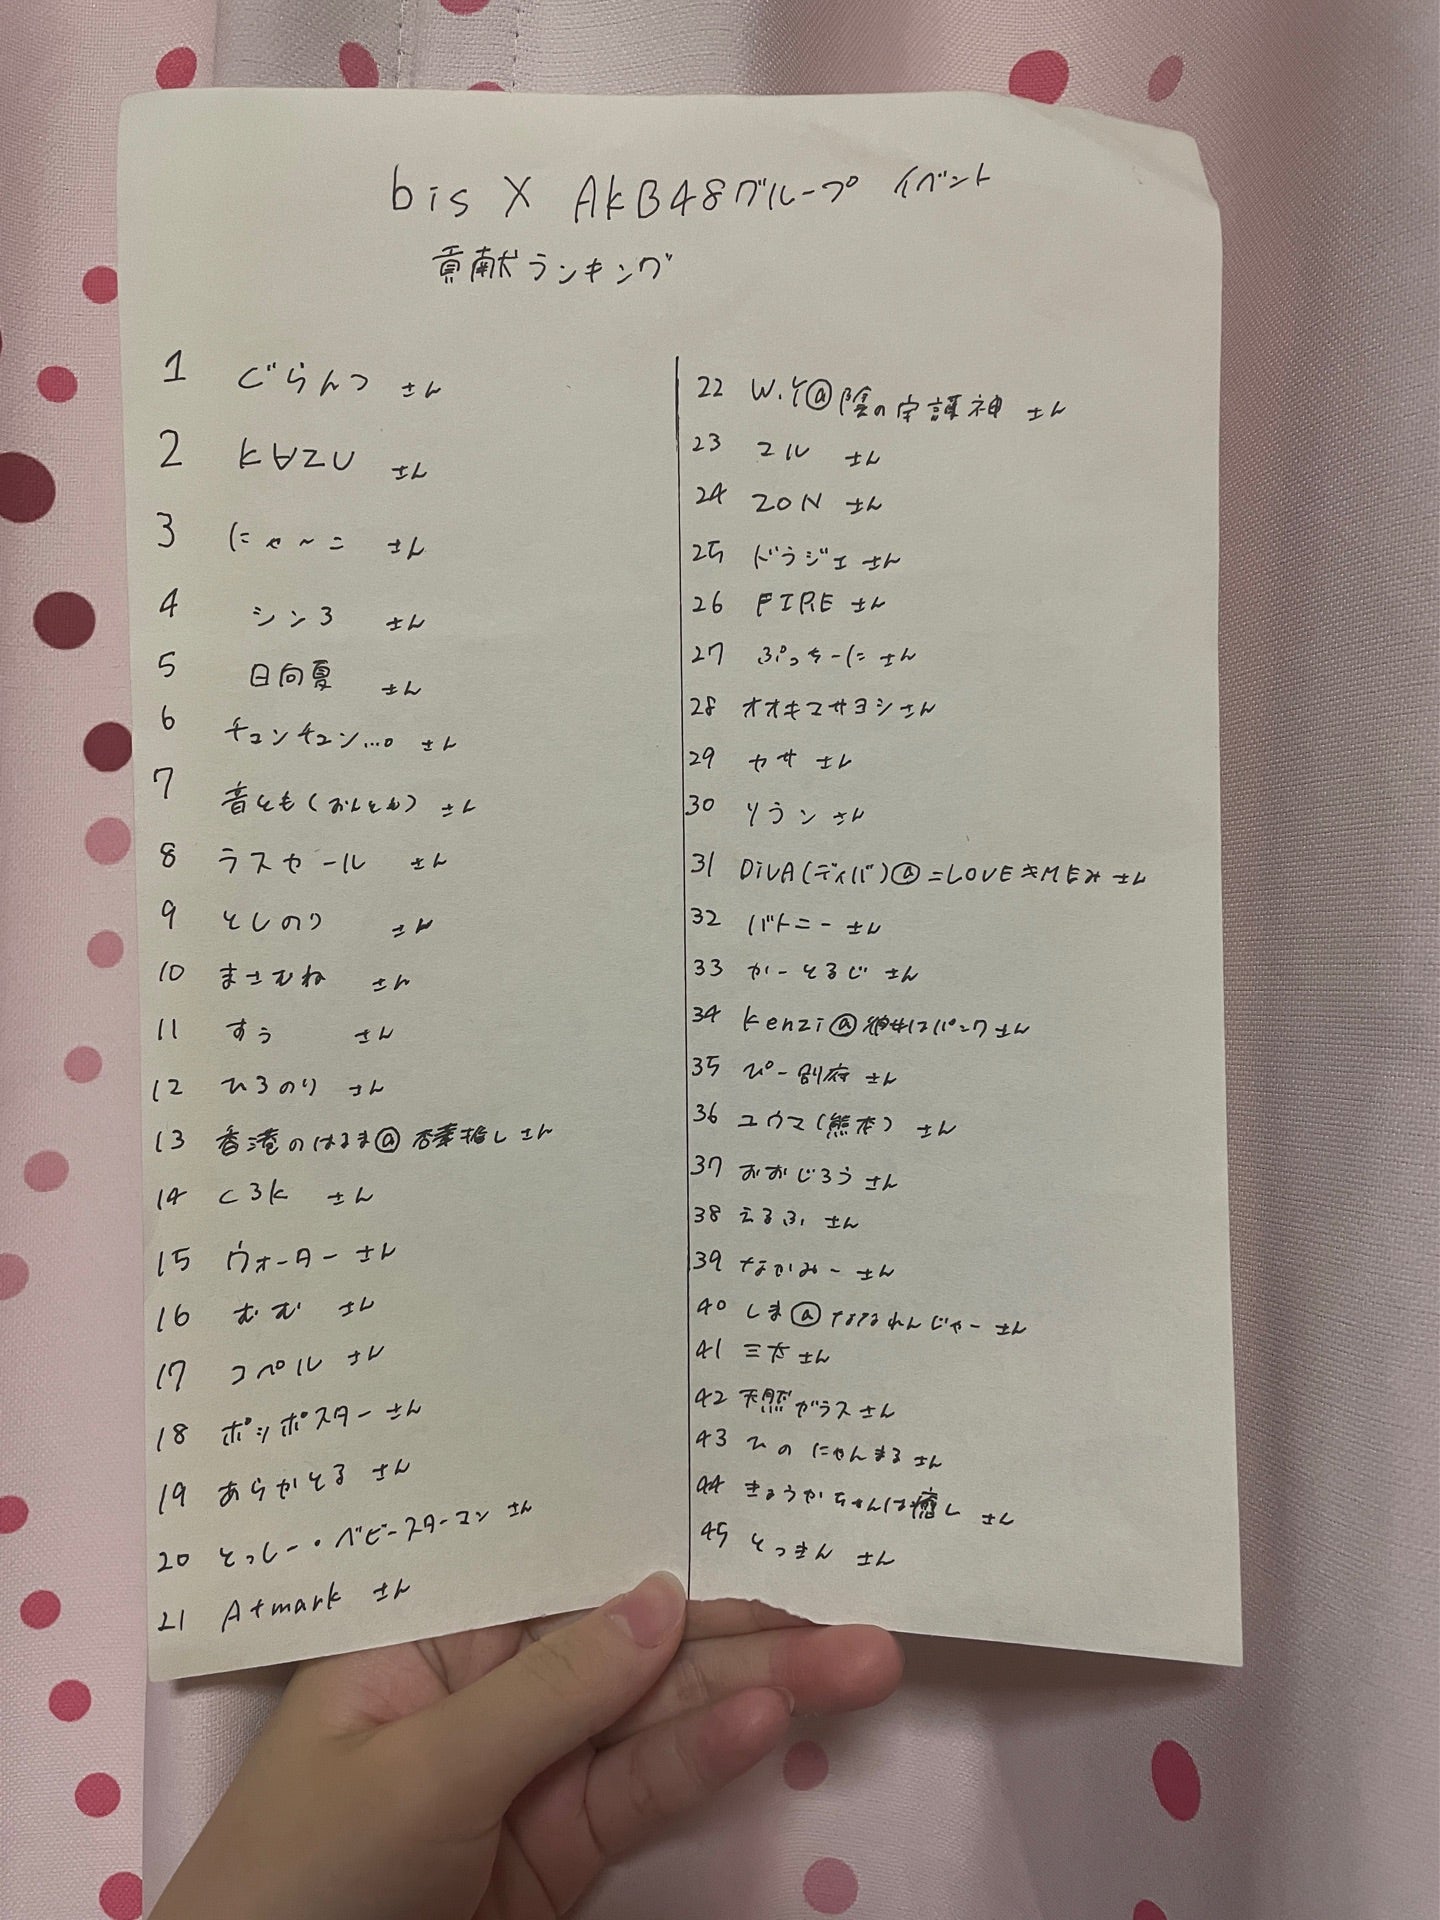 bis X AKB48グループ イベント
貢献ランキング
1 ぐらんつ さん
2 K∀ZU さん
3 にゃ〜こ さん
4 シン3 さん
5 日向夏 さん
6 チュンチュン...。 さん
7 音とも(おんとも) さん
8 ラスセール さん
9 としのり さん
10 まさむね さん
11 すぅ さん
12 ひろのり さん
13 香港のはるま@杏華推し さん
14 C3K さん
15 ウォーター さん
16 むむ さん
17 コペル さん
18 ポッポスター さん
19 あらかとる さん
20 とっしー・ベビースターマン さん
21 Atmark さん
22 W.Y@陰の守護神 さん
23 マル さん
24 ZON さん
25 ドラジェ さん
26 FIRE さん
27 ぷっちーに さん
28 オオキマサヨシ さん
29 ヤサ さん
30 リラン さん
31 DiVA(ディバ)@=LOVE≠MEみ さん
32 バトニー さん
33 かーとるじ さん
34 kenzi@彼女はパンク さん
35 ぴー別府 さん
36 ユウマ(熊本) さん
37 おおじろう さん
38 えるふ さん
39 なかみー さん
40 しま@ななれんじゃー さん
41 三太 さん
42 天然ガラス さん
43 ひの にゃんまる さん
44 きょうかちゃんは癒し さん
45 とっきん さん